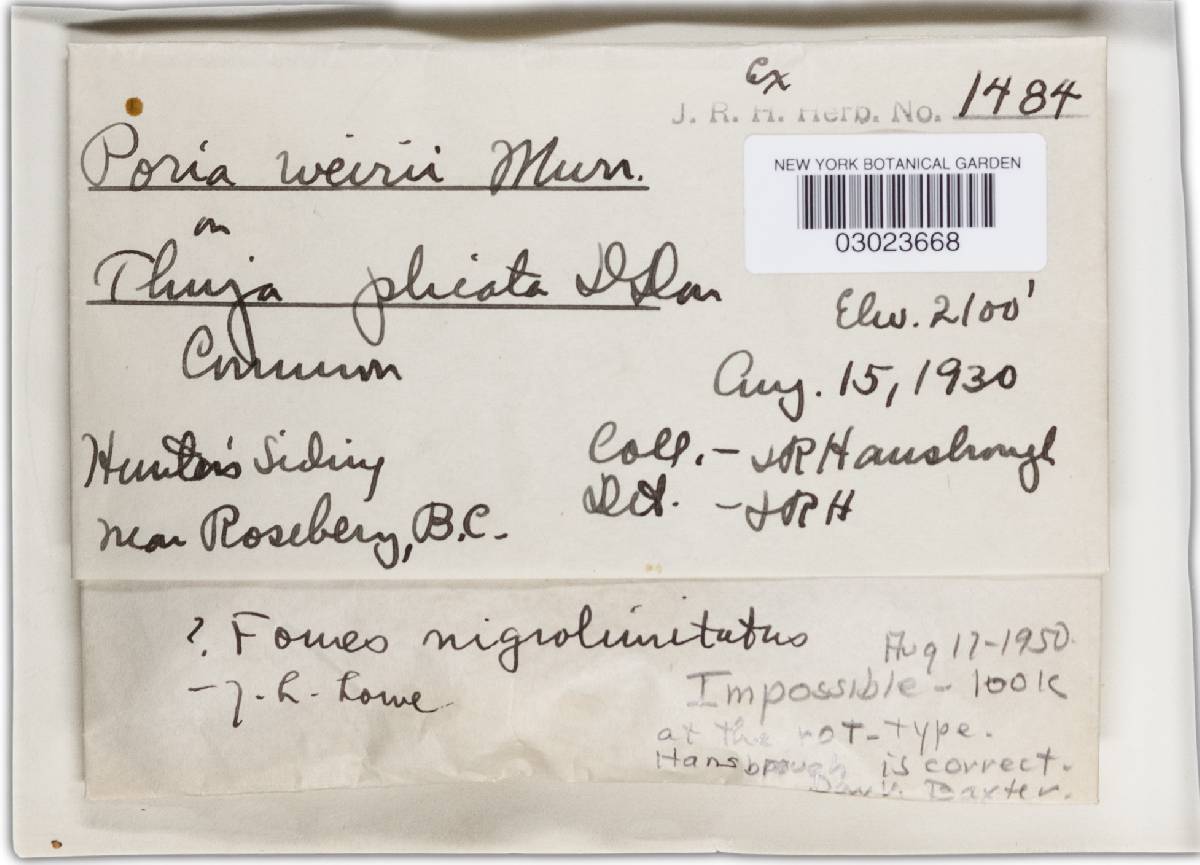 Ex
J. R. H. Herb. No. 1484
Poria weirii Murr.
NEW YORK BOTANICAL GARDEN
03023668
on
Thuja plicata D Don
Elev. 2100'
Common
Aug. 15, 1930
Hunters Siding
Coll. - JRHansbrough
near Rosebery, B.C.
Det. - JRH
? Fomes nigrolimitatus
- J. L. Lowe
Aug 17-1950.
Impossible - look
at the rot-type.
Hansbrough is correct.
Dow V. Baxter.